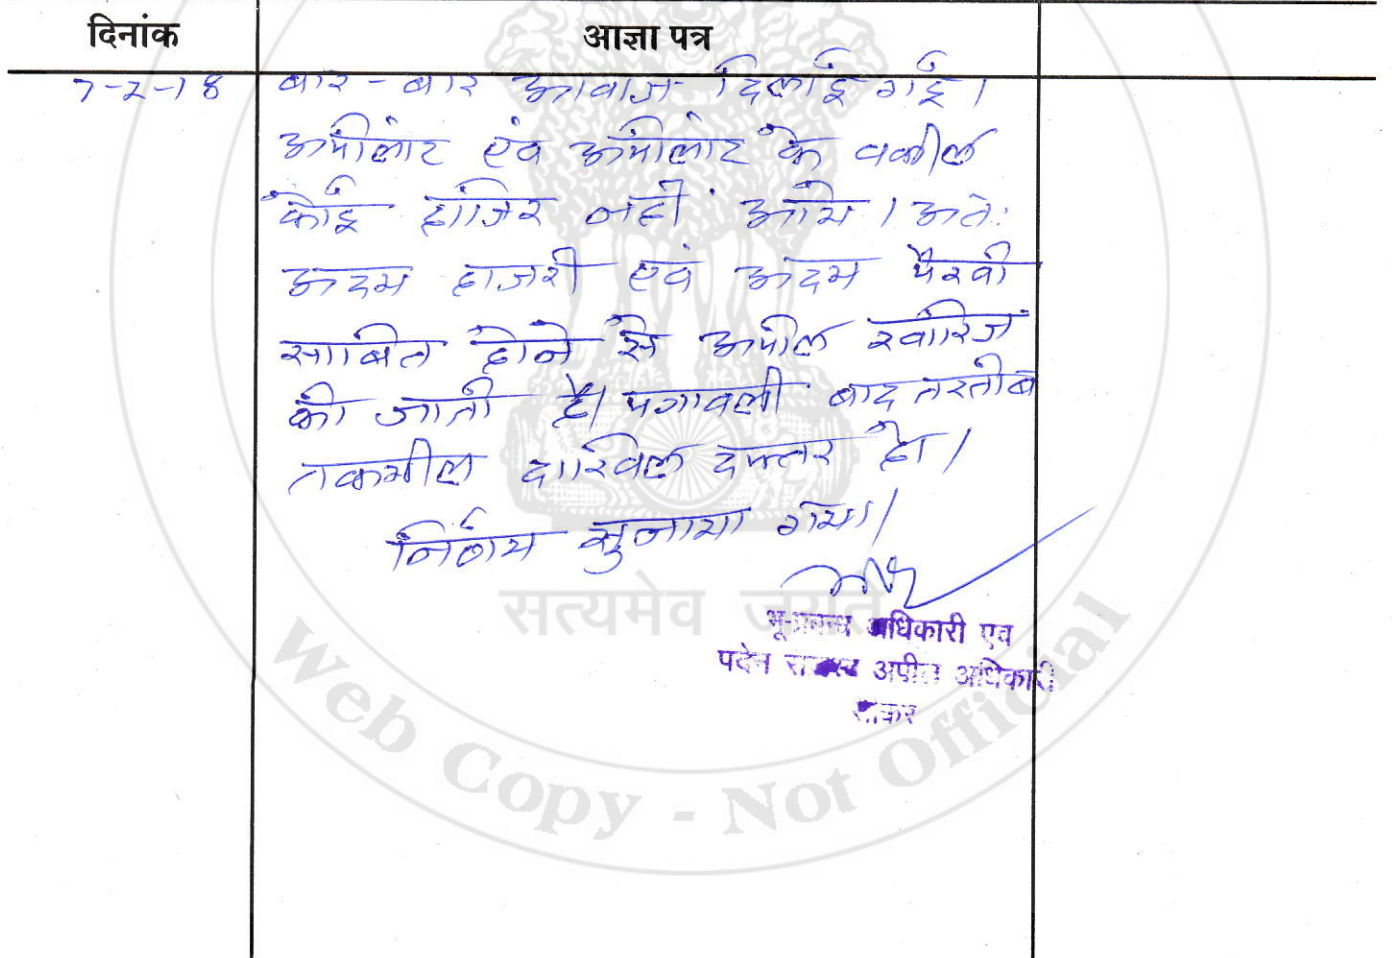 दिनांक आज्ञा पत्र
7-2-18 बार - बार आवाज दिलाई गई।
अपीलांट एंव अपीलांट के वकील
कोई हाजिर नहीं आये। अतः
अदम हाजरी एवं अदम पैरवी
साबित होने से अपील खारिज
की जाती है। पत्रावली बाद तरतीब
तकमील दाखिल दफ्तर हो।
निर्णय सुनाया गया।
सत्यमेव जयते
भू-प्रबन्ध अधिकारी एवं
पदेन राजस्व अपील अधिकारी
सीकर
Web Copy - Not Official